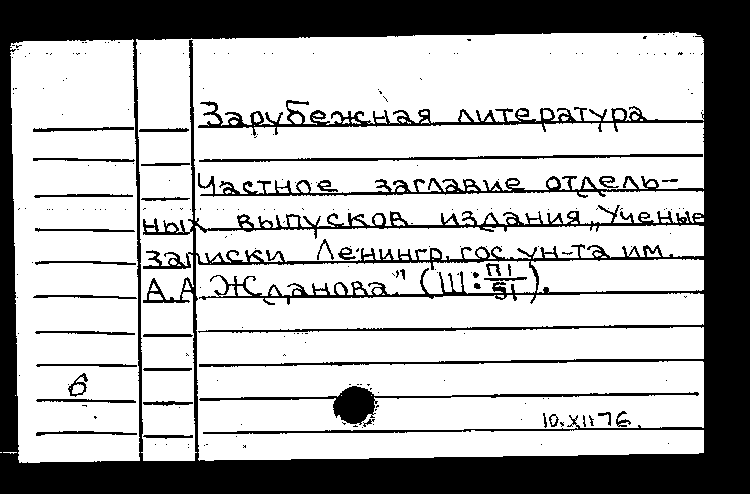 Зарубежная литература
Частное заглавие отдель-
ных выпусков издания „Ученые
записки Ленингр. гос. ун-та им.
А.А. Жданова" (Ш: П1/51).
6
10.XII 76.